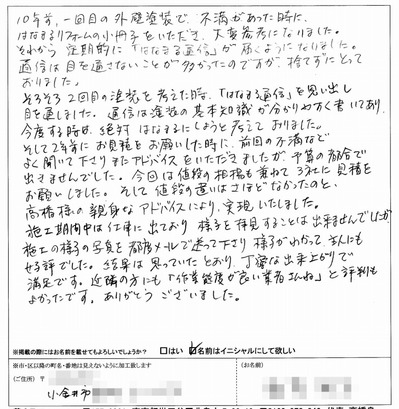 10年前、一回目の外壁塗装で、不満があった時に、
はなまるリフォームの小冊子をいただき、大変参考になりました。
それから定期的に「はなまる通信」が届くようになりました。
通信は目を通さないことが多かったのですが、捨てずにとって
おりました。
そろそろ2回目の塗装を考えた時、「はなまる通信」を思い出し
目を通しました。通信は塗装の基本知識が分かりやすく書いてあり、
今度する時は、絶対はなまるにしようと考えておりました。
そして2年年にお見積をお願いした時に、前回の不満など
よく聞いて下さりまたアドバイスをいただきましたが、予算の都合で
出来ませんでした。今回は値段の相場も兼ねて3社に見積を
お願いしました。そして値段の違いはさほどなかったのと、
高橋様の親身なアドバイスにより、実現いたしました。
施工期間中は仕事に出ており様子を拝見することは出来ませんでしたが
施工の様子の写真を都度メールで送って下さり様子がわかって、主人にも
好評でした。結果は思っていたとおり、丁寧な出来上がりで
満足です。近隣の方にも「作業態度が良い業者さんね」と評判も
よかったです。ありがとうございました。
※掲載の際にはお名前を載せてもよろしいでしょうか? □はい ☑名前はイニシャルにして欲しい
※市・区以降の町名・番地は見えないように加工致します
(ご住所) 〒
(お名前)
小金井市